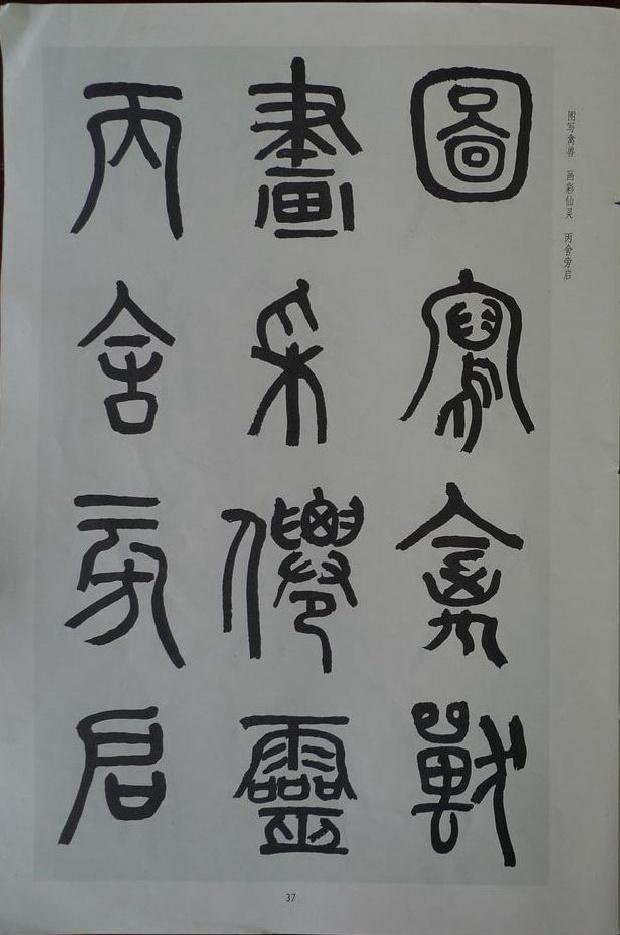 圖寫禽獸
畫采僊靈
丙舍旁启
图写禽兽 画彩仙灵 丙舍旁启
37